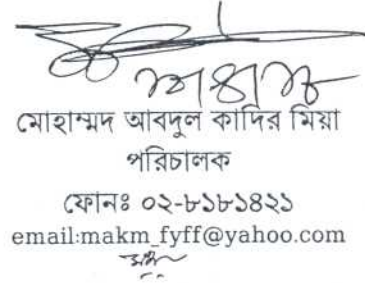 মোহাম্মদ আবদুল কাদির মিয়া
পরিচালক
ফোনঃ ০২-৮১৮১৪২১
email:makm_fyff@yahoo.com